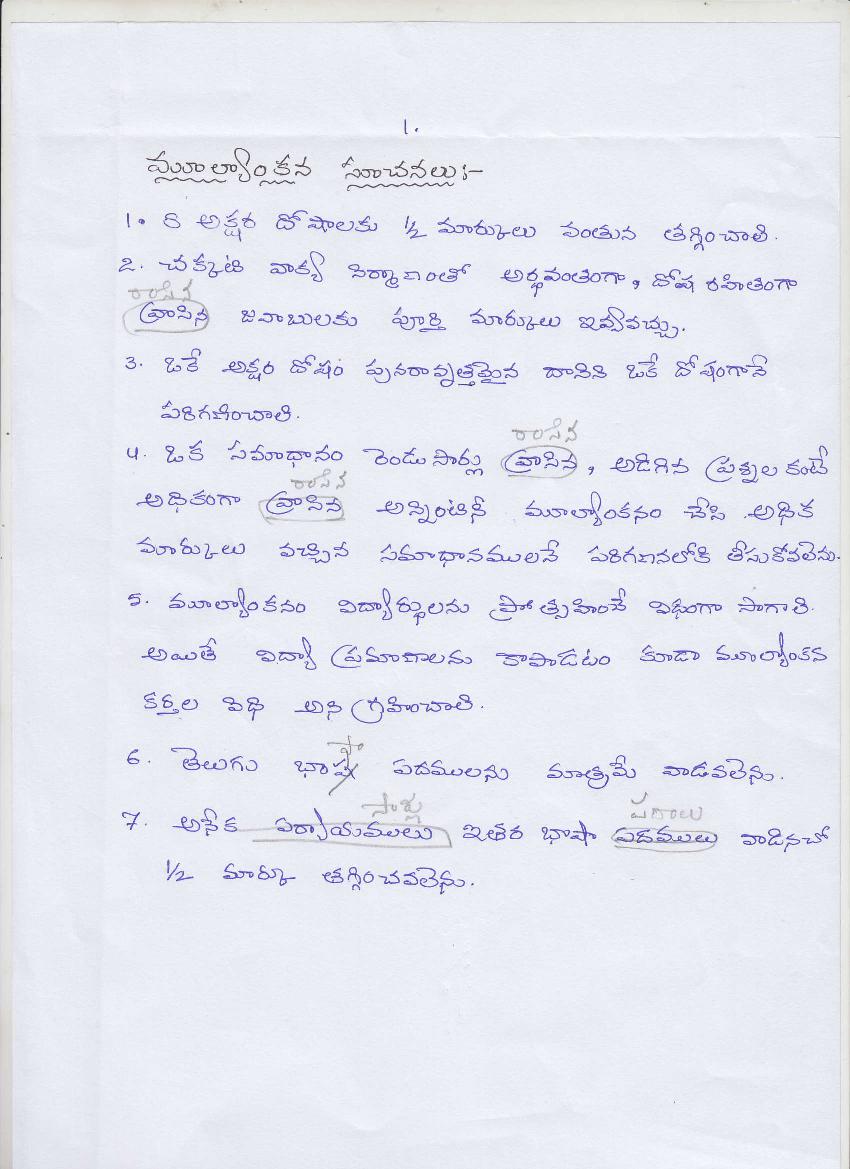 1.
మూల్యాంకన సూచనలు:-
1. 8 అక్షర దోషాలకు 1/2 మార్కులు వంతున తగ్గించాలి.
2. చక్కటి వాక్య నిర్మాణంతో అర్థవంతంగా, దోష రహితంగా
రాసిన
వ్రాసిన జవాబులకు పూర్తి మార్కులు ఇవ్వవచ్చు.
3. ఒకే అక్షర దోషం పునరావృత్తమైన దానిని ఒకే దోషంగానే
పరిగణించాలి.
రాసిన
4. ఒక సమాధానం రెండు సార్లు వ్రాసిన, అడిగిన ప్రశ్నల కంటే
రాసిన
అధికంగా వ్రాసిన అన్నింటినీ మూల్యాంకనం చేసి అధిక
మార్కులు వచ్చిన సమాధానములనే పరిగణనలోకి తీసుకోవలెను.
5. మూల్యాంకనం విద్యార్థులను ప్రోత్సహించే విధంగా సాగాలి.
అయితే విద్యా ప్రమాణాలను కాపాడటం కూడా మూల్యాంకన
కర్తల విధి అని గ్రహించాలి.
షా
6. తెలుగు భాష పదములను మాత్రమే వాడవలెను.
సార్లు పదాలు
7. అనేక పర్యాయములు ఇతర భాషా పదములు వాడినచో
1/2 మార్కు తగ్గించవలెను.